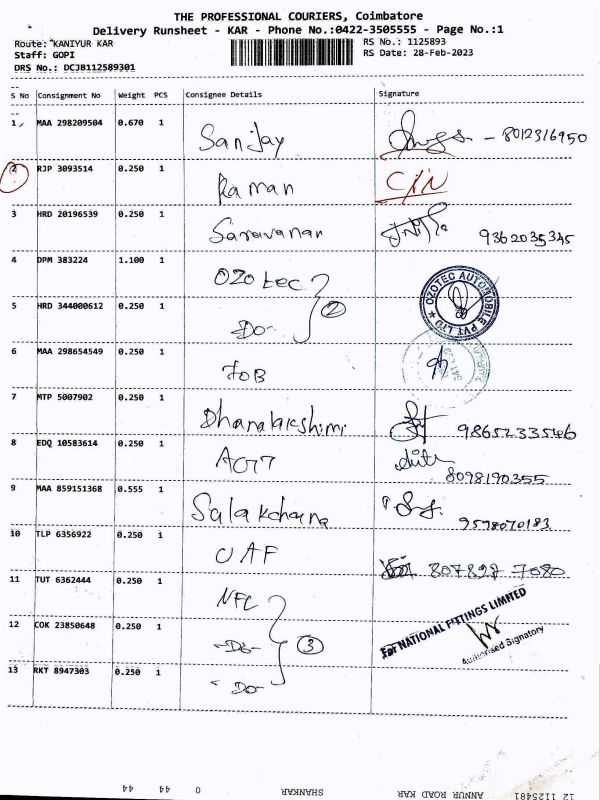 THE PROFESSIONAL COURIERS, Coimbatore
Delivery Runsheet - KAR - Phone No.:0422-3505555 - Page No.:1
Route: KANIYUR KAR
RS No.: 1125893
Staff: GOPI
RS Date: 28-Feb-2023
DRS No.: DCJB112589301
S No Consignment No Weight PCS Consignee Details Signature
1 MAA 298209504 0.670 1 Sanjay - 8012316950
2 RJP 3093514 0.250 1 Raman
3 HRD 20196539 0.250 1 Saravanan 9362035345
4 DPM 383224 1.100 1 OZOtec
OZOTEC AUTOMOBILE PVT LTD
5 HRD 344000612 0.250 1 -Do- 2
6 MAA 298654549 0.250 1
7 MTP 5007902 0.250 1 Dhanalakshimi 9865233546
8 EDQ 10583614 0.250 1 8098190355
9 MAA 859151368 0.555 1 9578070183
10 TLP 6356922 0.250 1 UAF 807897 7080
11 TUT 6362444 0.250 1 NFL
For NATIONAL FITTINGS LIMITED
12 COK 23850648 0.250 1 -Do- 3
Authorised Signatory
13 RKT 8947303 0.250 1 -Do-
44 44 0 SHANKAR ANNUR ROAD KAR 12 1125481